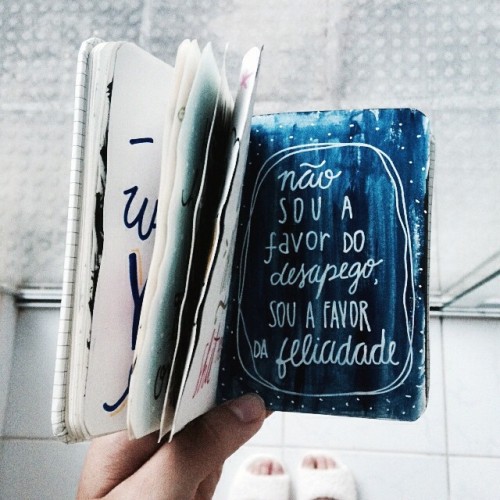 não
SOU A
favor DO
desapego,
SOU A FAVOR
DA felicidade